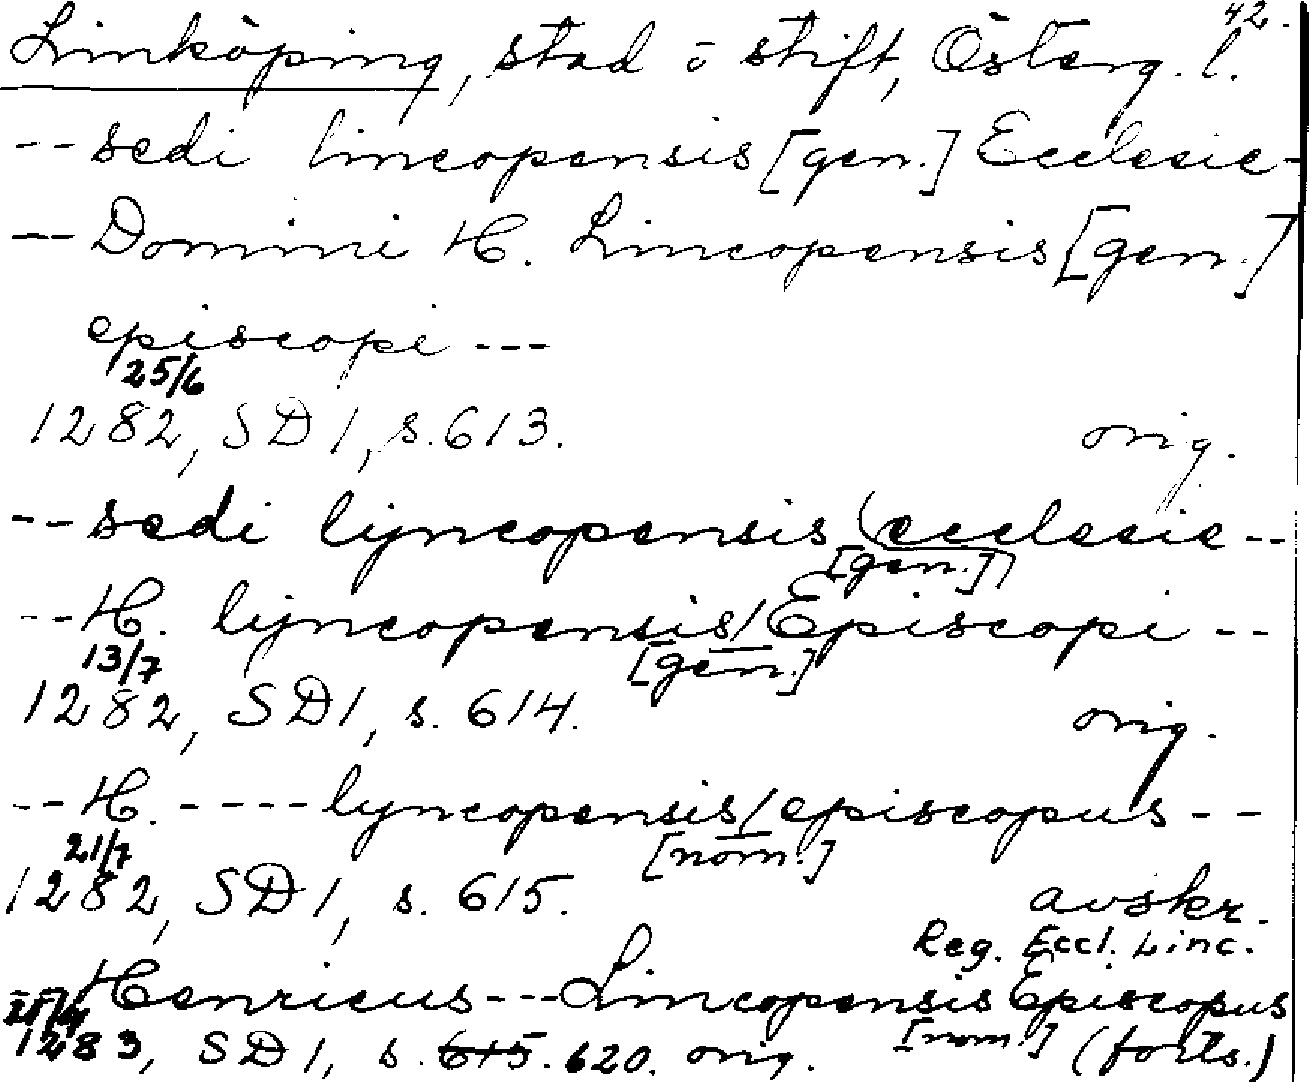 42.
Linköping, stad o stift, Österg. l.
-- sedi lincopensis [gen.] Ecclesie -
-- Domini H. Lincopensis [gen.]
episcopi ---
25/6
1282, SD 1, s. 613. orig.
-- sedi lyncopensis ecclesie --
[gen.]
-- H. lyncopensis / Episcopi --
13/7 [gen.]
1282, SD 1, s. 614. orig.
-- H. ---- lyncopensis / episcopus --
21/7 [nom.]
1282, SD 1, s. 615. avskr.
Reg. Eccl. Linc.
-- Henricus --- Lincopensis Episcopus
1283, SD 1, s. 615. 620. orig. [nom.] (forts.)